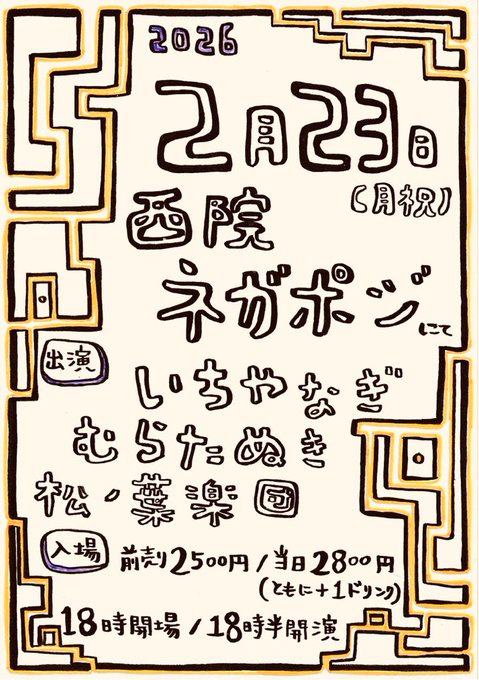 2026
2月23日
(月祝)
西院
ネガポジにて
出演
いちやなぎ
むらたぬき
松ノ葉楽団
入場 前売り2500円/当日2800円
(ともに+1ドリンク)
18時開場/18時半開演